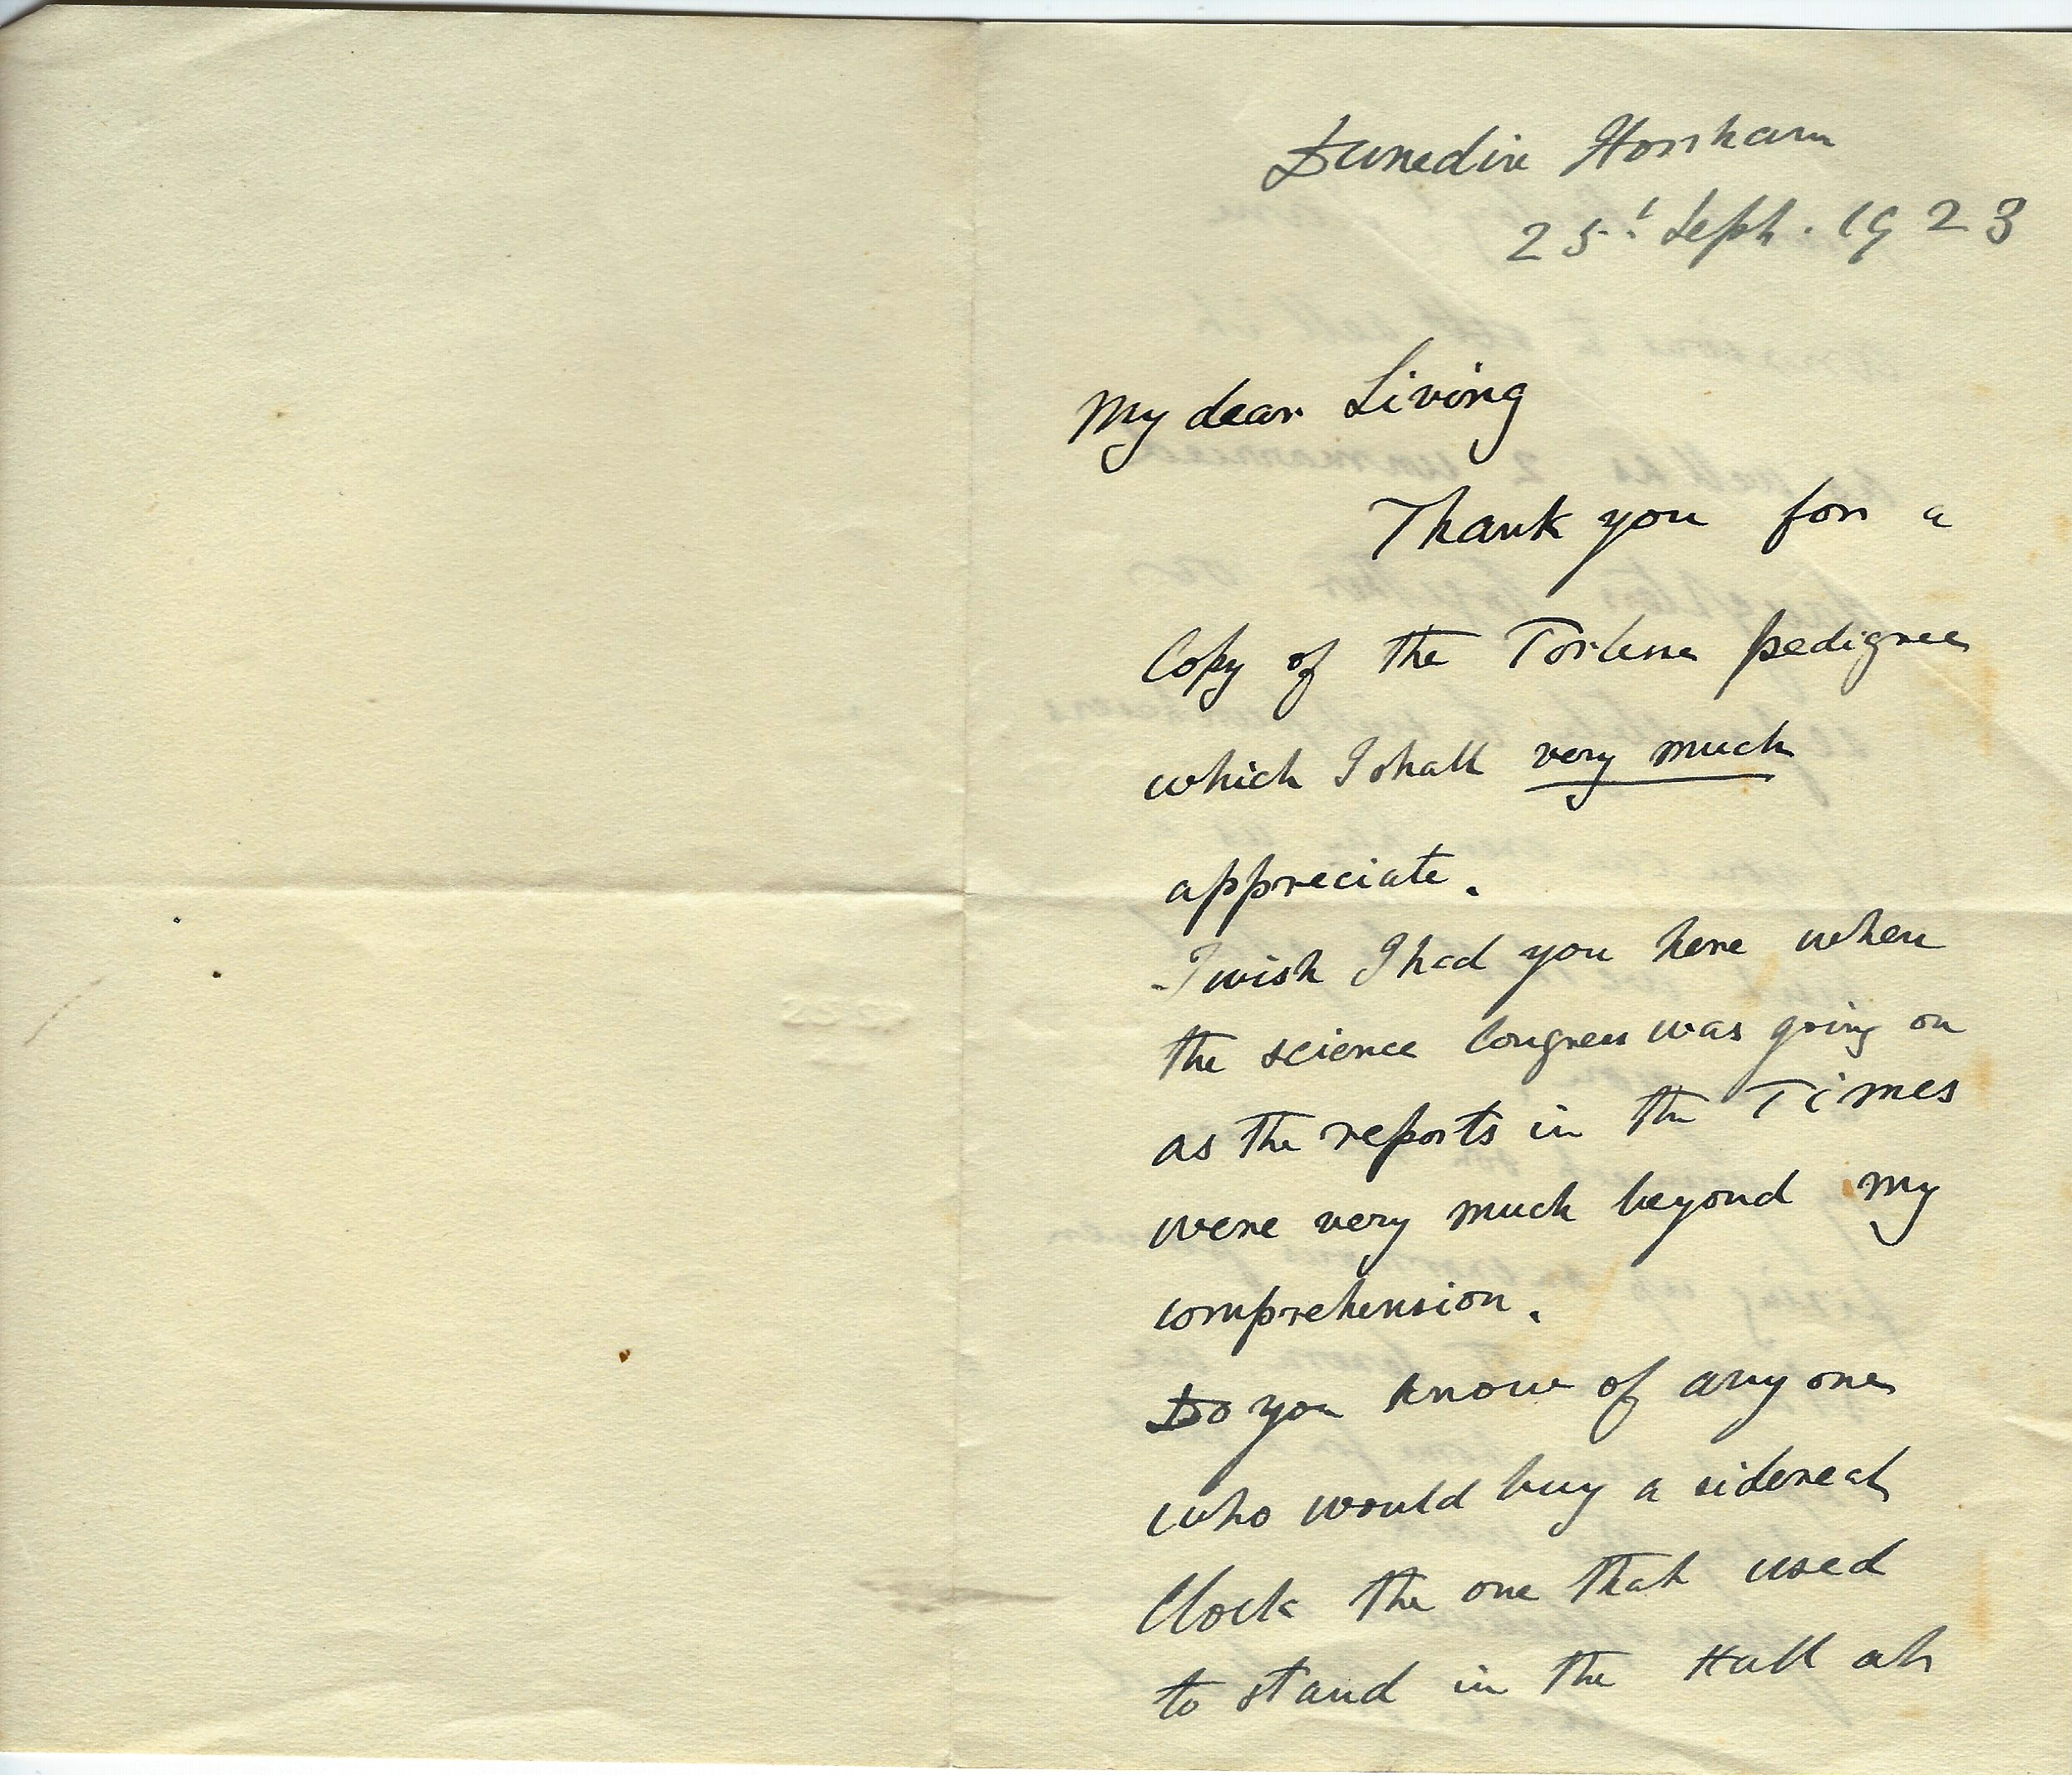 Dunedin Horsham
25t Sept. 1923
My dear Living
Thank you for a
Copy of the pedigree
which I shall very much
appreciate.
I wish I had you here when
the science Congress was going on
as the reports in the Times
were very much beyond my
comprehension.
Do you know of any one
who would buy a sidereal
Clock the one that used
to stand in the Hall at